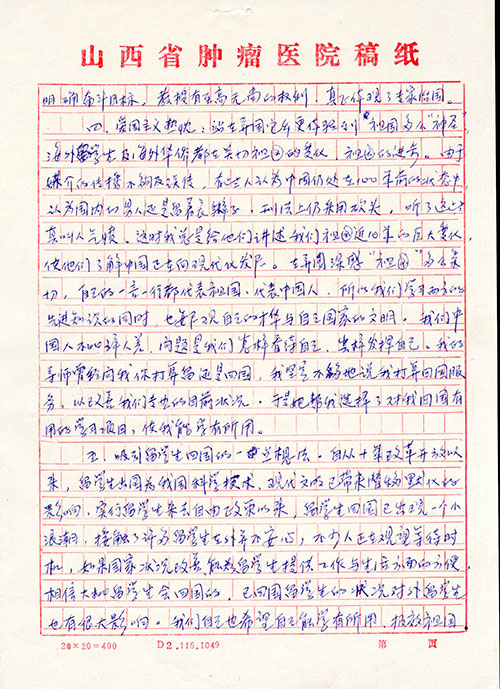 山西省肿瘤医院稿纸
明确奋斗目标。教授有至高无尚的权利，真正体现了专家治国。
四、爱国主义热忱：站在异国它乡更体验到"祖国多么"神圣"，
海外留学生及海外华侨都在关切祖国的变化，祖国的进步。由于
媒介的传播不够及误传，有些人认为中国仍处在100年前的状态中，
以为国内的男人还是留着长辫子，刑法上仍采用砍头，听了这些
真叫人气愤，这时我总是给他们讲述我们祖国近10年的巨大变化，
使他们了解中国正在向现代化发展。在异国深感"祖国"多么亲
切，自己的一言一行都代表祖国、代表中国人。所以我们学习西方的
先进知识的同时，也要体现自己的才华与自己国家的文明。我们中
国人不比外国人差，问题是我们怎样看待自己，怎样发挥自己。我的
导师曾经问我你打算留还是回国，我坚定不移地说我打算回国服
务，以改善我们专业的目前状况。于是她帮我选择了对我回国有
用的学习项目，使我能学有所用。
五、吸引留学生回国的一些想法。自从十年改革开放以
来，留学生出国为我国科学技术、现代文明已带来潜移默化的
影响，实行留学生来去自由政策以来，留学生回国已出现一个小
浪潮，接触了许多留学生在外并不安心，不少人正在观望等待时
机，如果国家状况改善，能够给留学生提供工作与生活方面的方便，
相信大批留学生会回国的，已回国留学生的状况对外留学生
也有很大影响。我们自己也希望自己能学有所用，报效祖国
20×20=400 D2.115.1049 第 页